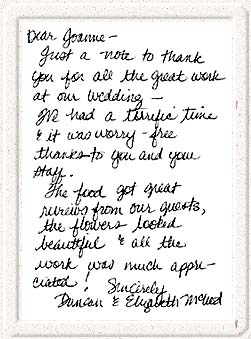 Dear Joanne -
Just a note to thank
you for all the great work
at our wedding -
We had a terrific time
& it was worry-free
thanks to you and your
staff.
The food got great
reviews from our guests,
the flowers looked
beautiful & all the
work was much appre-
ciated! Sincerely
Duncan & Elizabeth McLeod